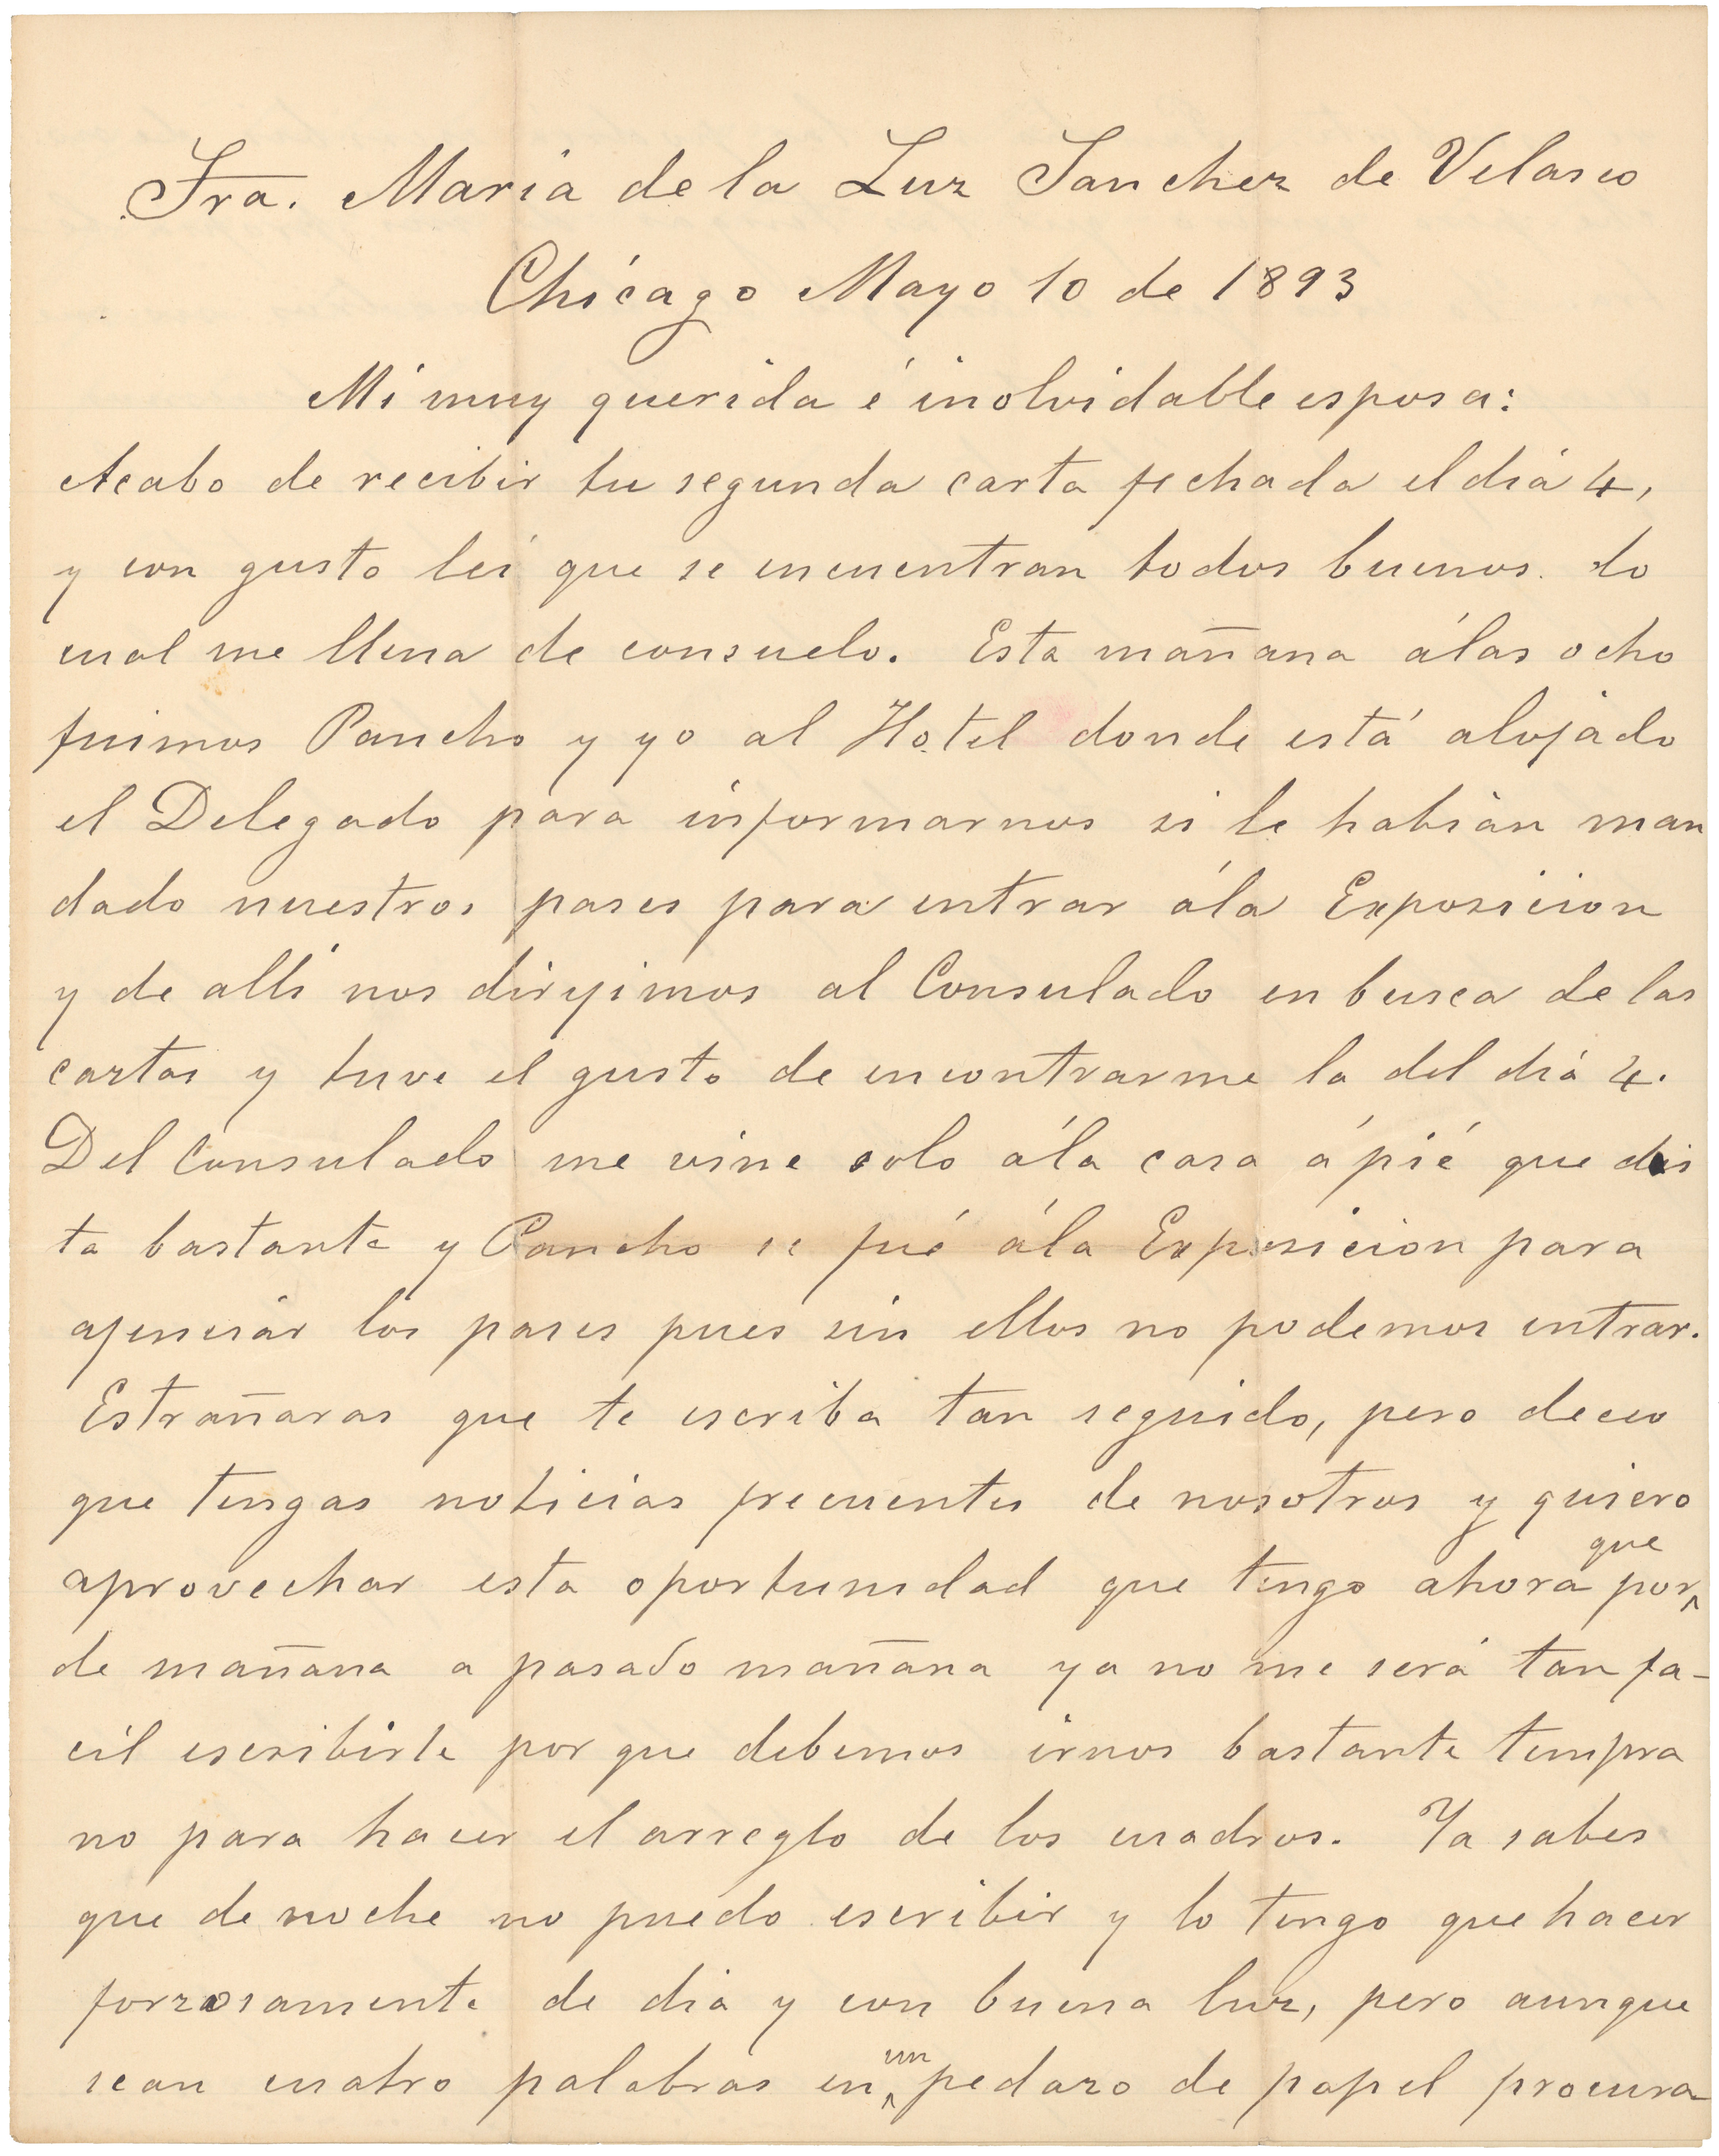 Sra. Maria de la Luz Sanchez de Velasco
Chicago Mayo 10 de 1893
Mi muy querida é inolvidable esposa:
Acabo de recibir tu segunda carta fechada el diá 4,
y con gusto leí que se encuentran todos buenos. lo
cual me llena de consuelo. Esta mañana álas ocho
fuimos Pancho y yo al Hotel donde está alojado
el Delegado para informarnos si le habián man
dado nuestros pases para entrar ála Exposicion
y de allí nos dirijimos al Consulado en busca de las
cartas y tuve el gusto de encontrarme la del diá 4.
Del Consulado me vine solo ála casa á pié que dis
ta bastante y Pancho se fué ála Exposicion para
ajenciar los pases pues sin ellos no podemos entrar.
Estrañaras que te escriba tan seguido, pero deceo
que tengas noticias frecuentes de nosotros y quiero
aprovechar esta oportunidad que tengo ahora por que
de mañana a pasado mañana ya no me será tan fa-
cil escribirte por que debemos irnos bastante tempra
no para hacer el arreglo de los cuadros. Ya sabes
que de noche no puedo escribir y lo tengo que hacer
forzosamente de dia y con buena luz, pero aunque
sean cuatro palabras en un pedazo de papel procura